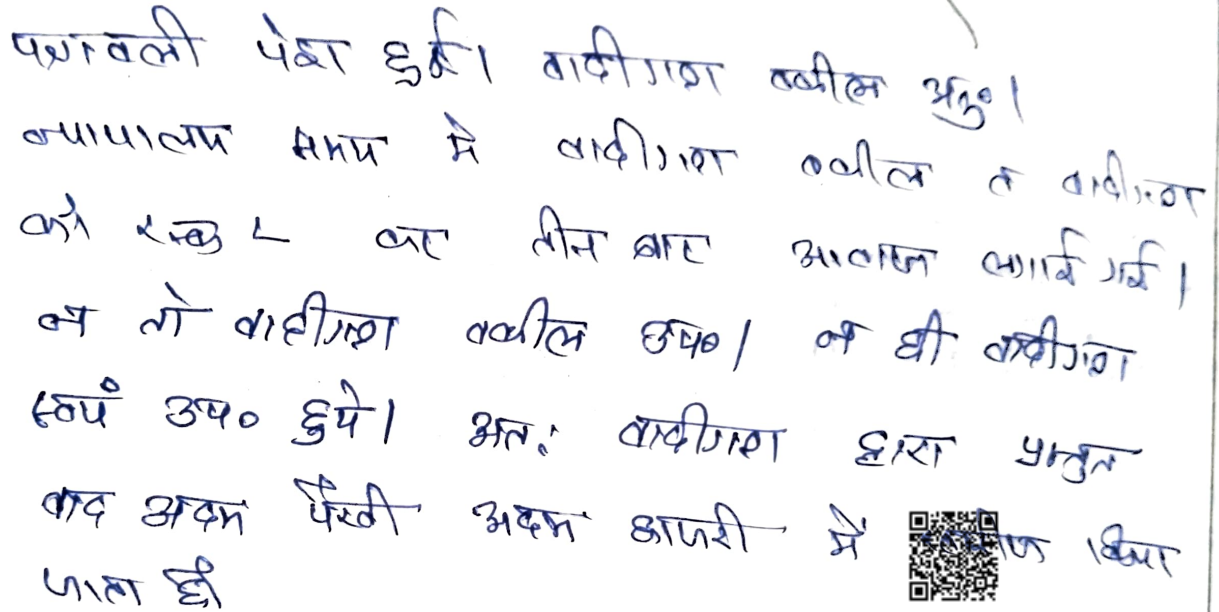 पत्रावली पेश हुई। वादीगण वकील अनु०।
न्यायालय समय मे वादीगण वकील व वादीगण
को रूक २ कर तीन बार आवाज लगाई गई।
न तो वादीगण वकील उप०। न ही वादीगण
स्वयं उप० हुये। अतः वादीगण द्वारा प्रस्तुत
वाद अदम पैरवी अदम हाजरी में किया
जाता है